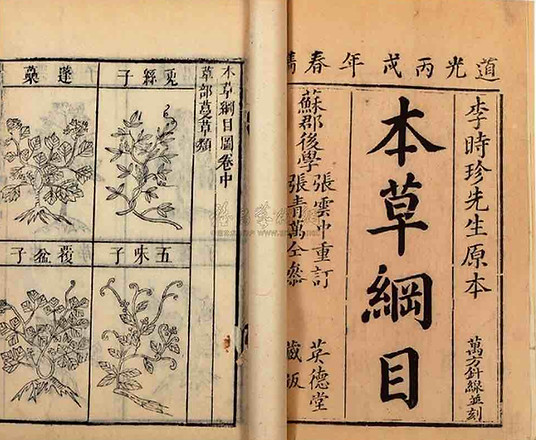 道光丙戌年春鐫
李時珍先生原本
萬方針線並刻
本草綱目
蘇郡後學
張雲中重訂
張青萬仝參
英德堂
藏板
本草綱目圖卷中
草部蔓草類
兎絲子
蓬虆
五味子
覆盆子